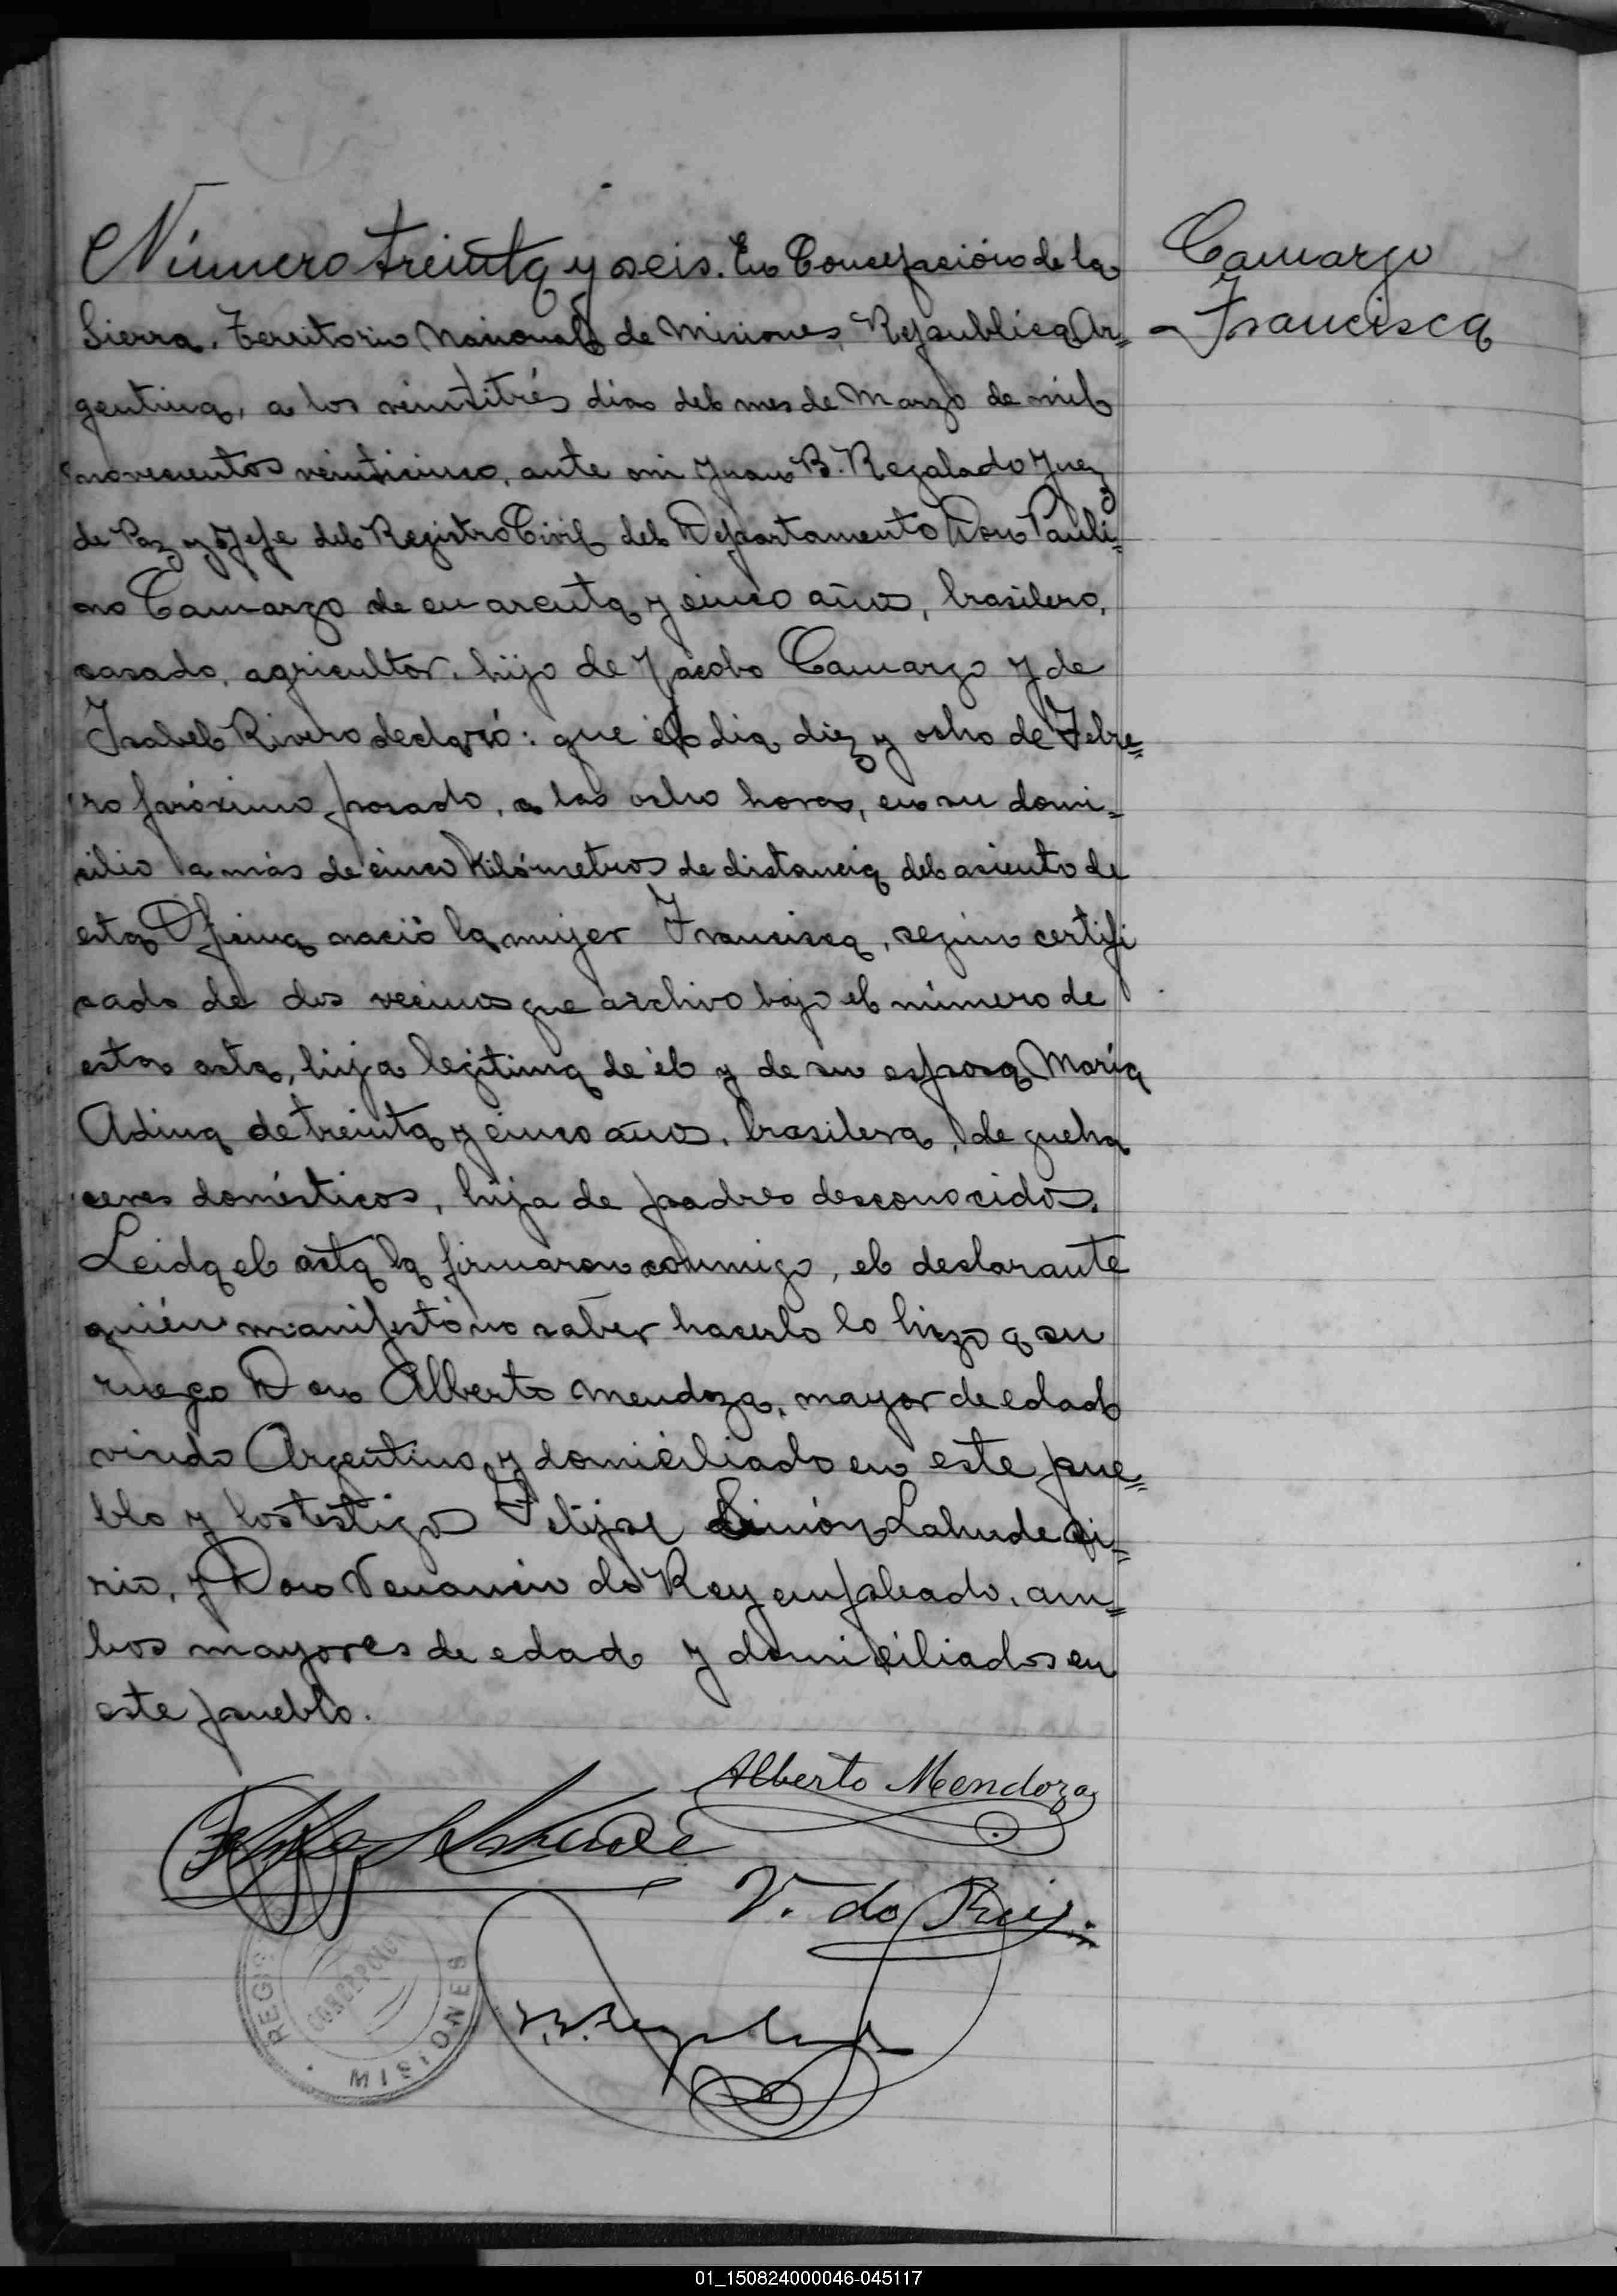 Número treinta y seis. En Concepción de la
Sierra, Territorio Nacional de Misiones, República Ar=
gentina, a los veintitrés dias del mes de Marzo de mil
novecientos veinticinco, ante mi Juan B. Regalado Juez
de Paz y Jefe del Registro Civil del Departamento Don Pauli=
no Camargo de cuarenta y cinco años, brasilero,
casado, agricultor, hijo de Jacobo Camargo y de
Isabel Rivero declaró: que el dia diez y ocho de Febre=
ro próximo pasado, a las ocho horas, en su domi=
cilio a más de cinco Kilómetros de distancia del asiento de
esta Oficina nació la mujer Francisca, según certifi
cado de dos vecinos que archivo bajo el número de
esta acta, hija legitima de él y de su esposa María
Adina de treinta y cinco años, brasilera, de queha
ceres domésticos, hija de padres desconocidos.
Leida el acta la firmaron conmigo, el declarante
quién manifestó no saber hacerlo lo hizo a su
ruego Don Alberto Mendoza, mayor de edad
viudo Argentino y domiciliado en este pue=
blo y los testigos Felipe Simón Lahude Si=
rio, y Don Venancio do Rey empleado, am=
bos mayores de edad y domiciliados en
este pueblo.
Camargo
- Francisca
Alberto Mendoza
Lahude
V. do Rey.
J. B. Regalado
REGIS
CONCEPCION
MISIONES
01_150824000046-045117